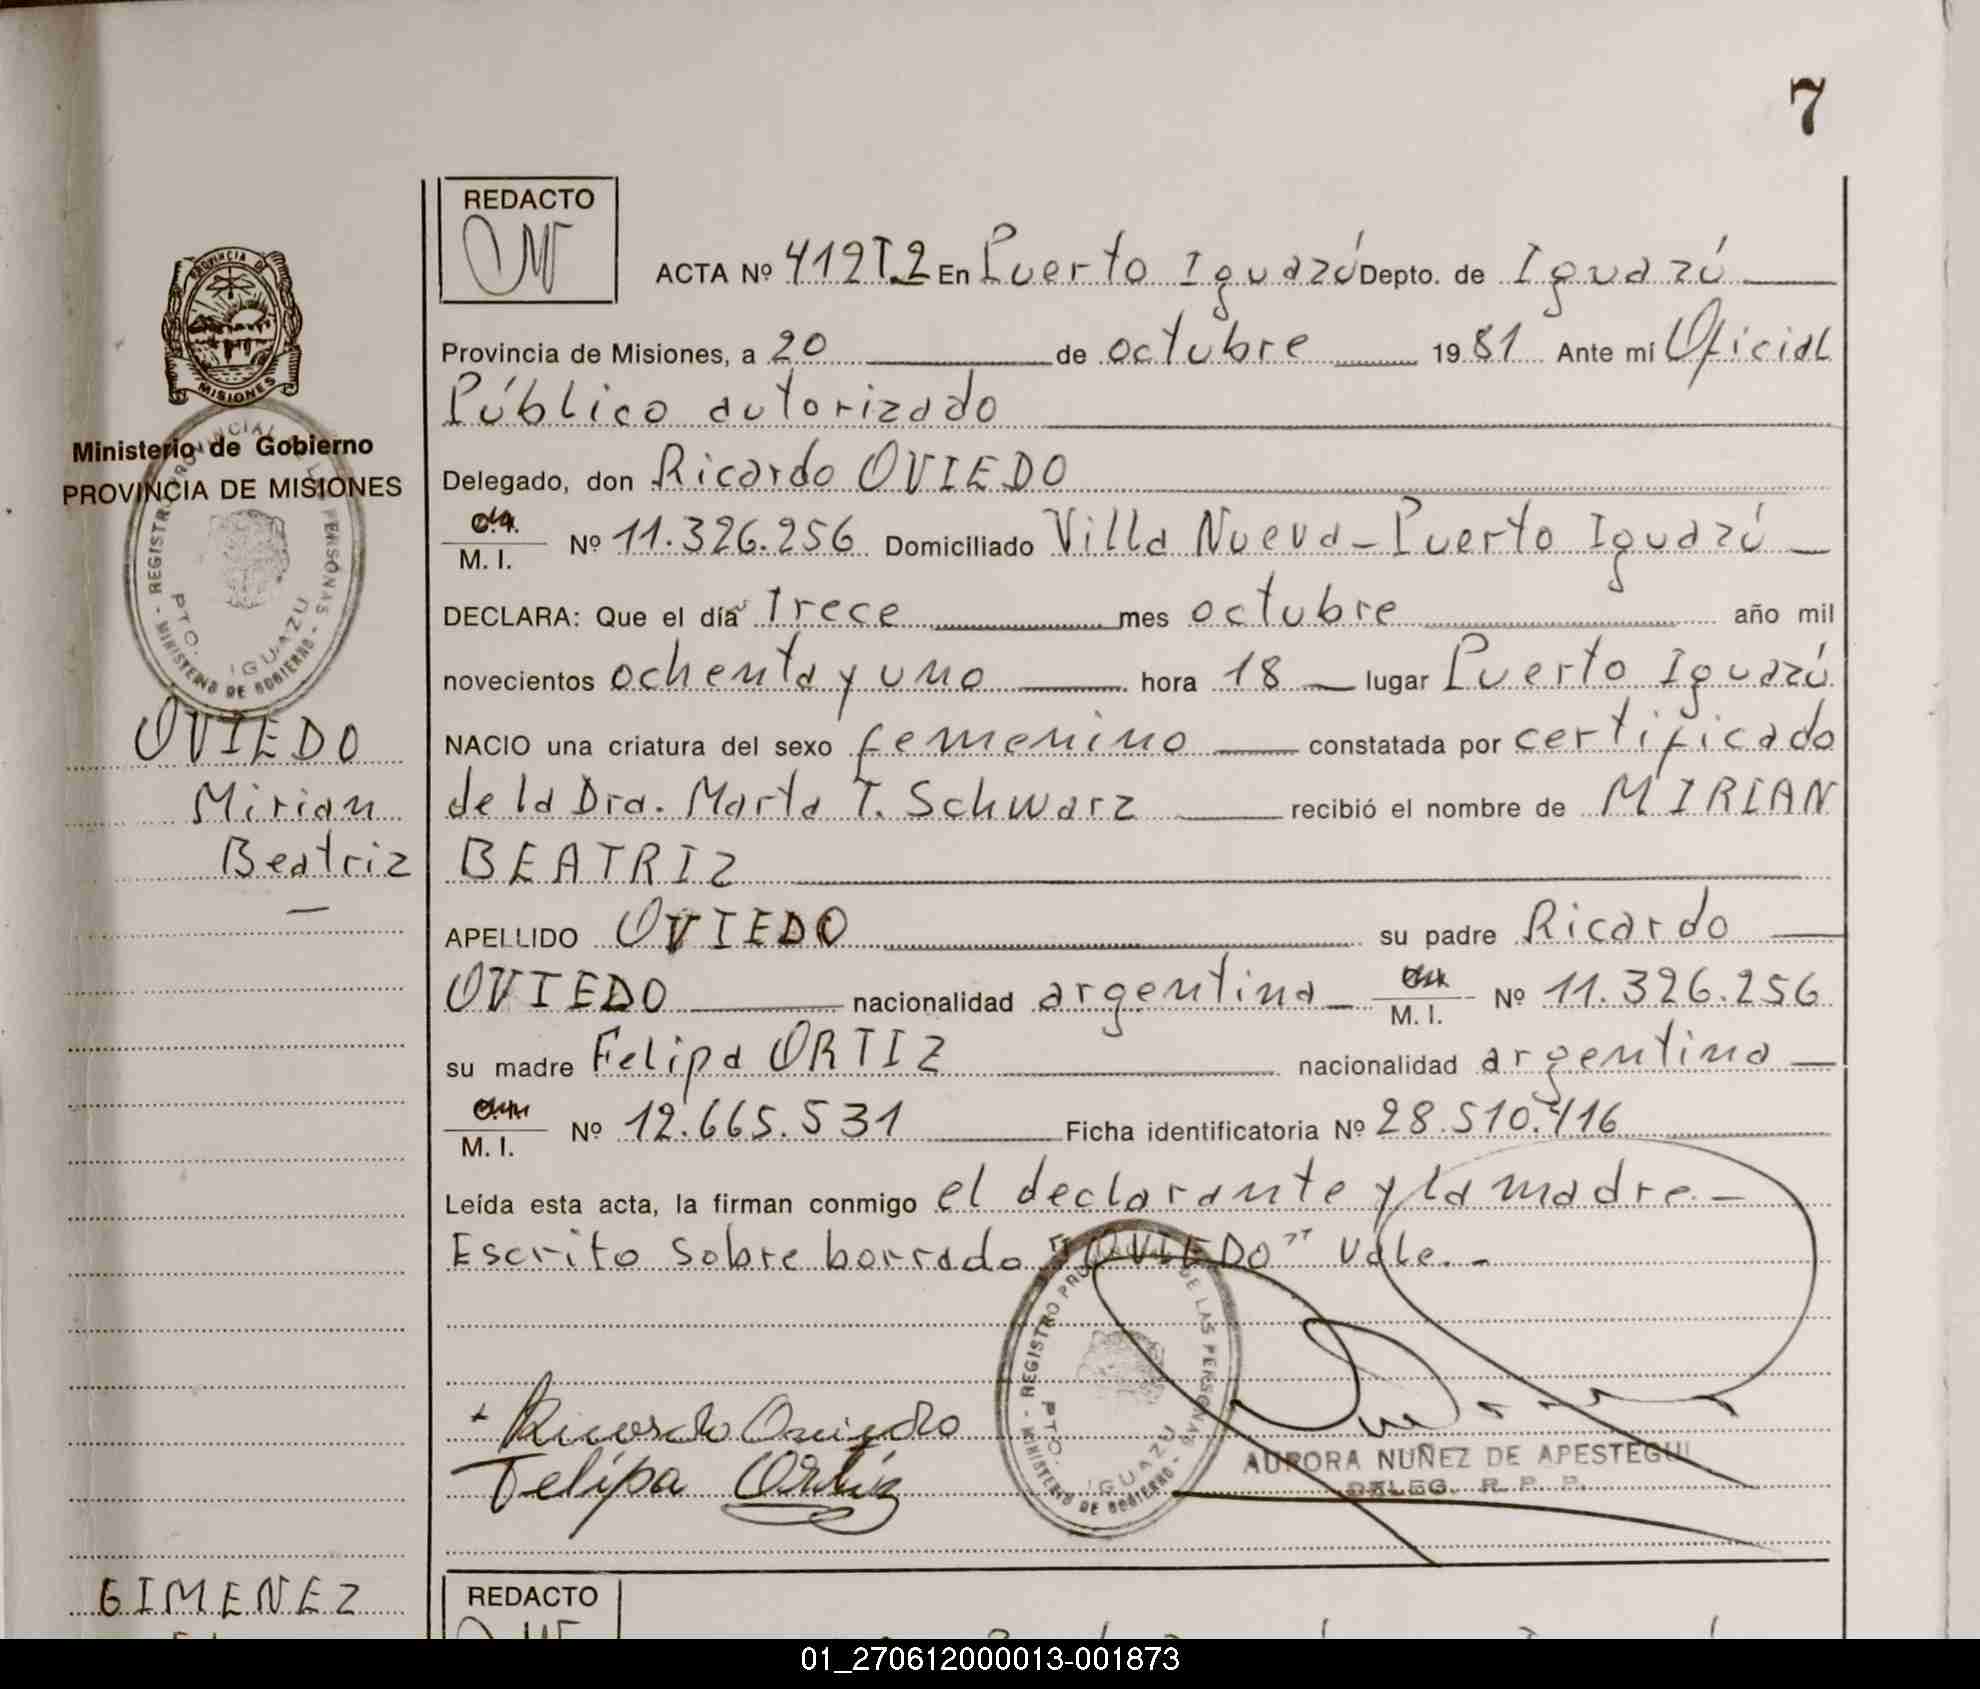 7
REDACTO
ACTA Nº 412T.2 En Puerto Iguazú Depto. de Iguazú
Provincia de Misiones, a 20 de octubre 1981 Ante mí Oficial
Público autorizado
Delegado, don Ricardo OVIEDO
M. I. Nº 11.326.256 Domiciliado Villa Nueva - Puerto Iguazú
DECLARA: Que el día Trece mes octubre año mil
novecientos ochenta y uno hora 18 lugar Puerto Iguazú
NACIO una criatura del sexo femenino constatada por certificado
de la Dra. Marta T. Schwarz recibió el nombre de MIRIAN
BEATRIZ
APELLIDO OVIEDO su padre Ricardo
OVIEDO nacionalidad argentina M. I. Nº 11.326.256
su madre Felipa ORTIZ nacionalidad argentina
M. I. Nº 12.665.531 Ficha identificatoria Nº 28.510.416
Leída esta acta, la firman conmigo el declarante y la madre.-
Escrito sobre borrado "OVIEDO" vale.-
Ricardo Oviedo
Felipa Ortiz
REGISTRO PROVINCIAL DE LAS PERSONAS
PTO. IGUAZU
- MINISTERIO DE GOBIERNO -
AURORA NUÑEZ DE APESTEGUI
DELEG. R. P. P.
PROVINCIA DE
MISIONES
Ministerio de Gobierno
PROVINCIA DE MISIONES
REGISTRO PROVINCIAL DE LAS PERSONAS
PTO. IGUAZU
- MINISTERIO DE GOBIERNO -
OVIEDO
Mirian
Beatriz
GIMENEZ
REDACTO
01_270612000013-001873